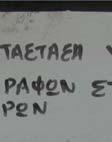 ΤΑΕΤΑΕΛ
ΡΑΦΩΝ ΣΤ
ΡΩΝ